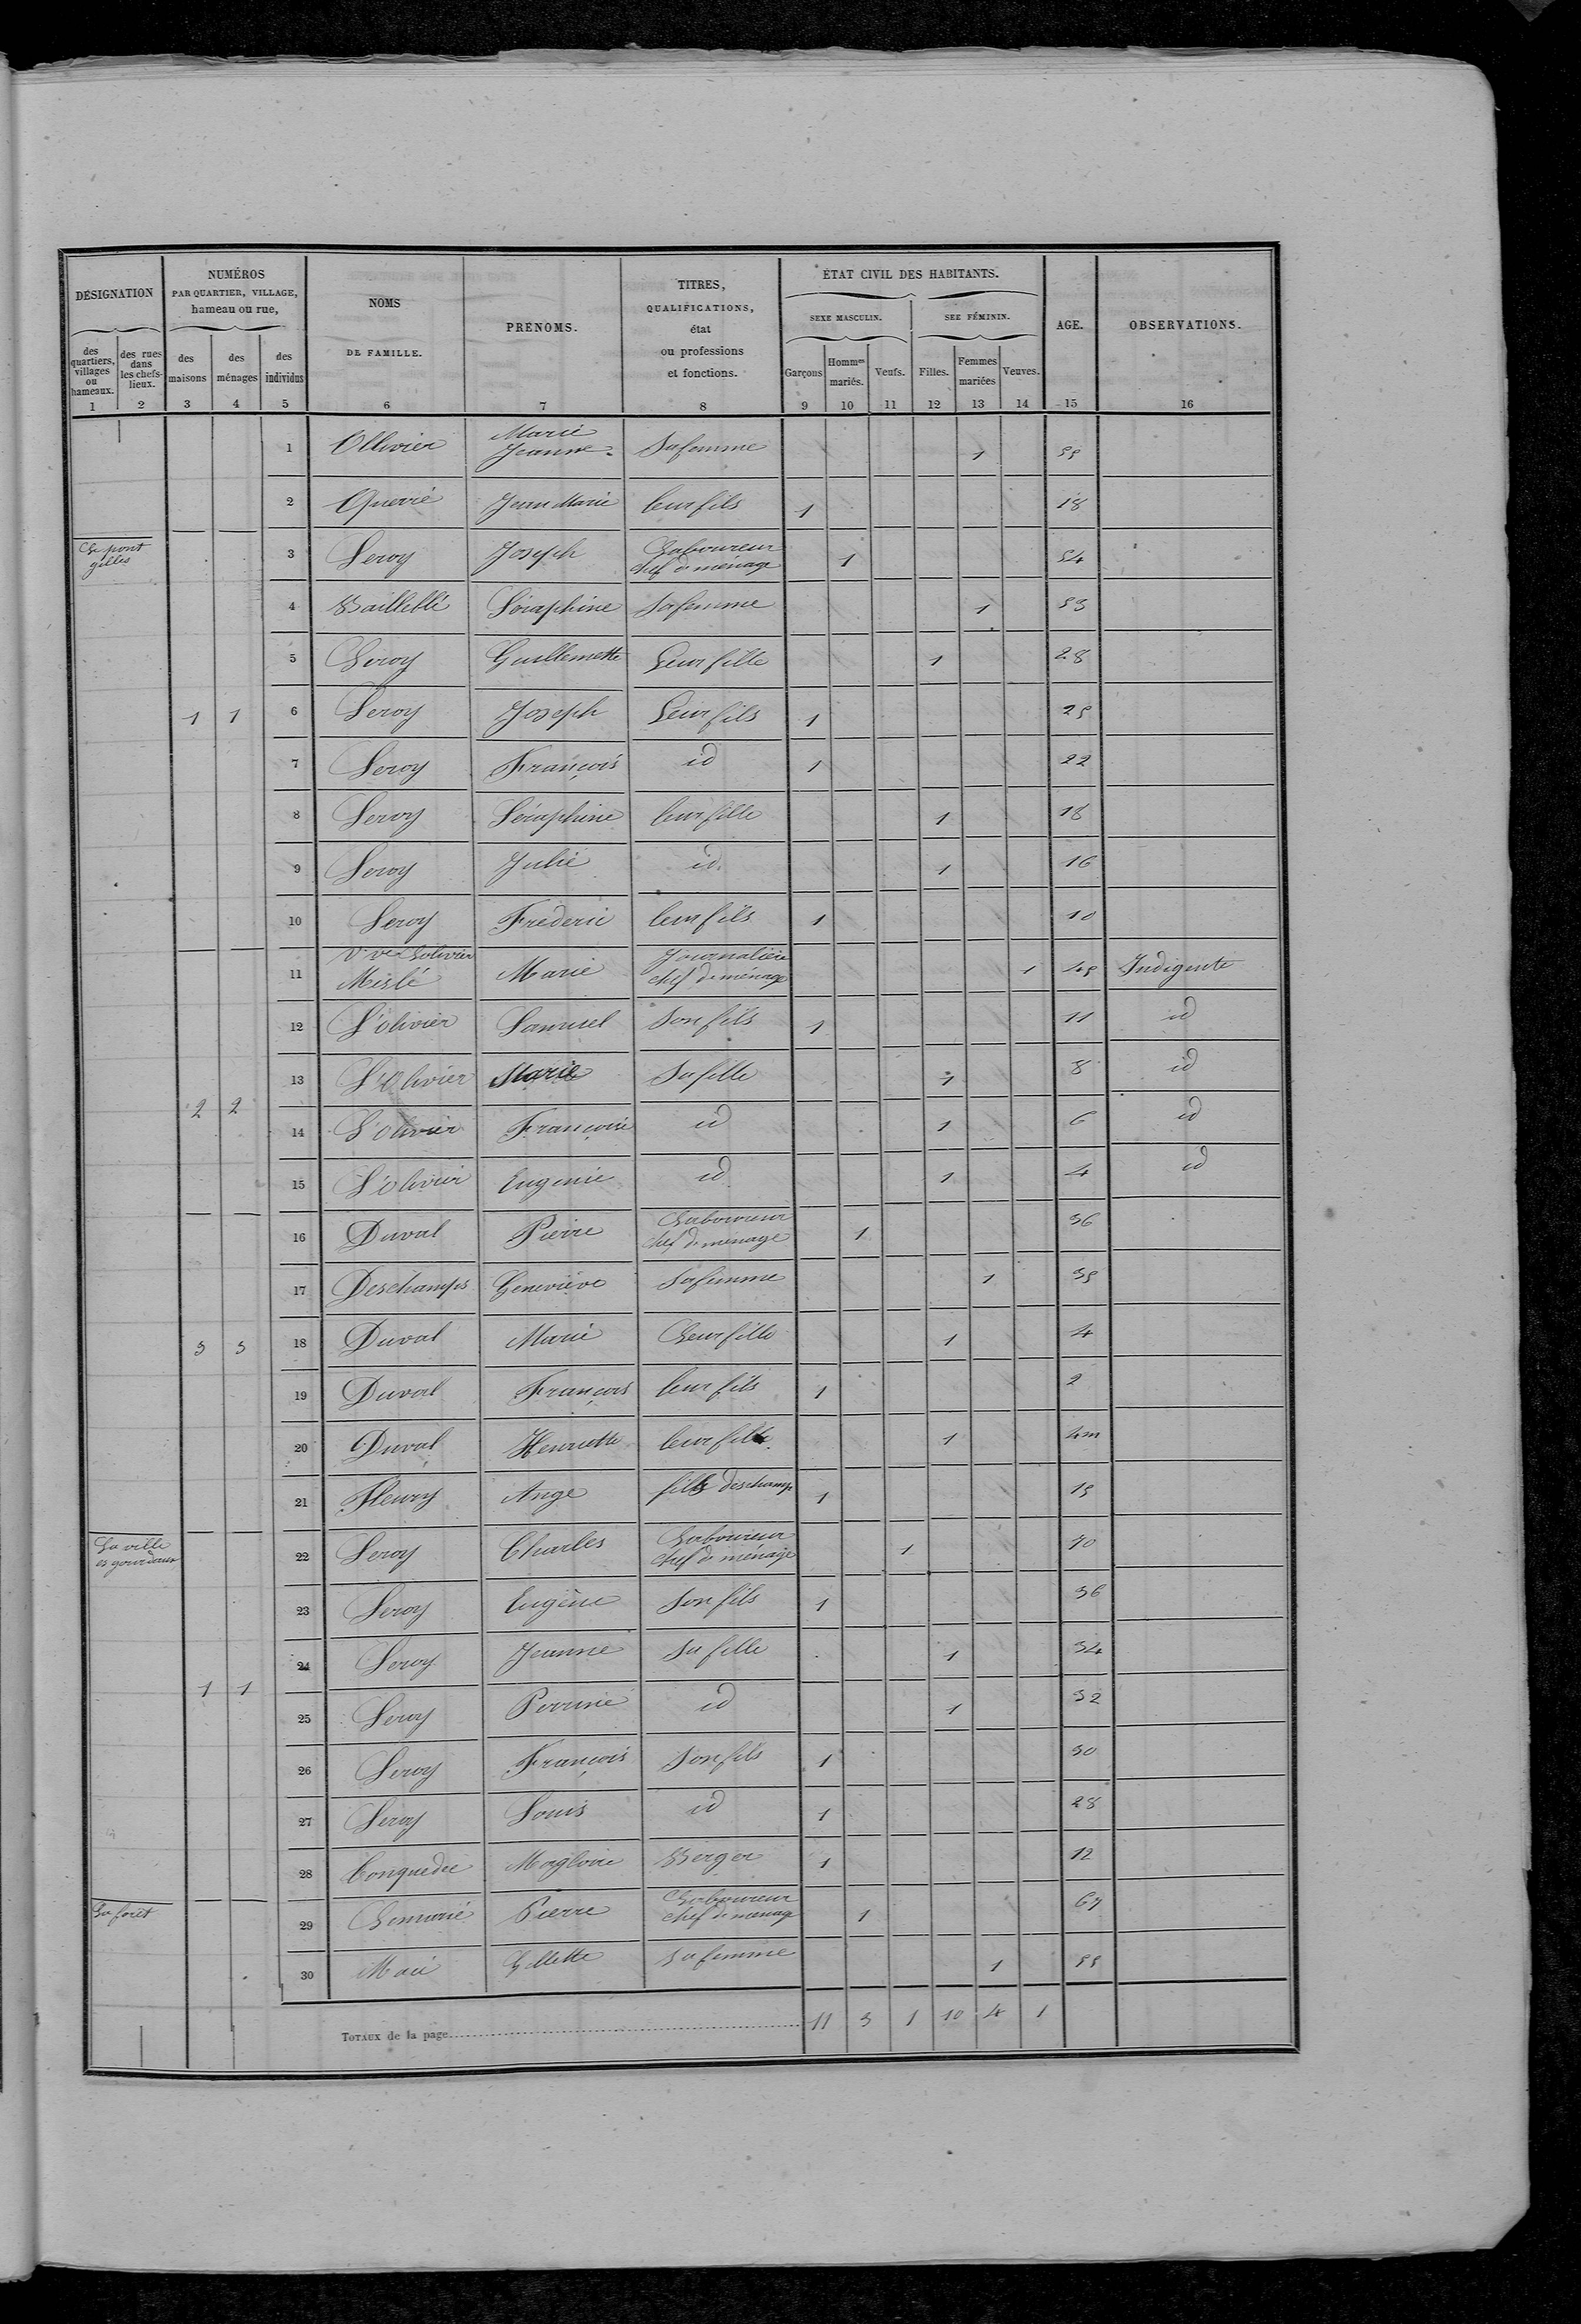 DÉSIGNATION
NUMÉROS
PAR QUARTIER, VILLAGE,
hameau ou rue,
NOMS
DE FAMILLE.
PRÉNOMS.
TITRES,
QUALIFICATIONS,
état
ou professions
et fonctions.
ÉTAT CIVIL DES HABITANTS.
SEXE MASCULIN.
SEE FÉMININ.
AGE.
OBSERVATIONS.
des quartiers, villages ou hameaux.
des rues dans les chefs-lieux.
des maisons
des ménages
des individus
Garçons
Hommes mariés.
Veufs.
Filles.
Femmes mariées
Veuves.
1 2 3 4 5 6 7 8 9 10 11 12 13 14 15 16
1 Ollivier Marie Jeanne Sa femme 1 55
2 Querré Jean Marie leur fils 1 18
Le pont gilles
3 Leroy Joseph Laboureur chef de ménage 1 54
4 Bailleblé Séraphine Sa femme 1 53
5 Leroy Guillemette Leur fille 1 28
1 1 6 Leroy Joseph Leur fils 1 25
7 Leroy François id 1 22
8 Leroy Séraphine leur fille 1 18
9 Leroy Julie id. 1 16
10 Leroy Frédéric leur fils 1 10
11 Vve Lolivier Meslé Marie Journalière chef de ménage 1 45 Indigente
12 L'olivier Samuel Son fils 1 11 id
13 L'Olivier Marie Sa fille 1 8 id
2 2
14 L'olivier Françoise id 1 6 id
15 L'olivier Eugenie id 1 4 id
16 Duval Pierre Laboureur chef de ménage 1 36
17 Deschamps Geneviève Sa femme 1 35
3 3 18 Duval Marie Leur fille 1 4
19 Duval François leur fils 1 2
20 Duval Henriette leur fille 1 4m
21 Fleury Ange fils deschamp 1 15
La ville es gourdaux
22 Leroy Charles Laboureur chef de ménage 1 70
23 Leroy Eugène Son fils 1 36
24 Leroy Jeanne Sa fille 1 34
1 1
25 Leroy Perrine id 1 32
26 Leroy François Son fils 1 30
27 Leroy Louis id 1 28
28 Conquedec Magloire Berger 1 12
La forêt
29 Pierre Laboureur chef de ménage 1 67
30 Macé Gillette Sa femme 1 55
TOTAUX de la page 11 3 1 10 4 1